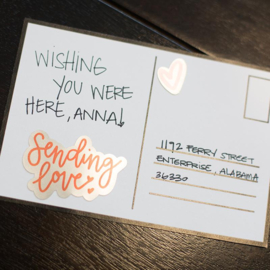 WISHING
YOU WERE
HERE, ANNA!
sending
love
1192 PERRY STREET
ENTERPRISE, ALABAMA
36330